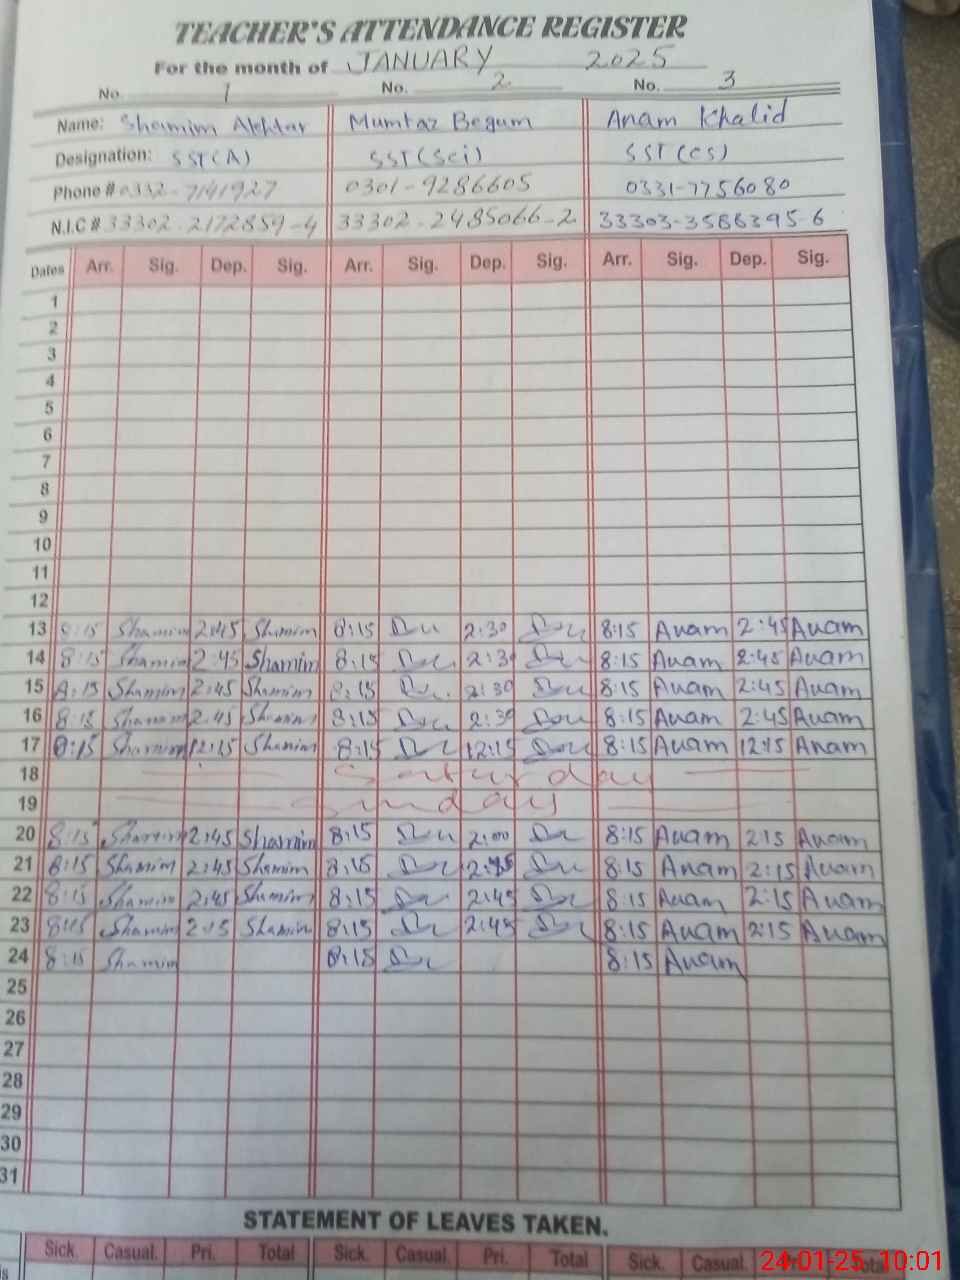 TEACHER'S ATTENDANCE REGISTER
For the month of JANUARY 2025
No. 1 No. 2 No. 3
Name: Shamim Akhtar Mumtaz Begum Anam Khalid
Designation: SST(A) SST(Sci) SST(CS)
Phone # 0332-7141927 0301-9286605 0331-7756080
N.I.C # 33302-2172859-4 33302-2485066-2 33303-3586395-6
Dates Arr. Sig. Dep. Sig. Arr. Sig. Dep. Sig. Arr. Sig. Dep. Sig.
1
2
3
4
5
6
7
8
9
10
11
12
13 8:15 Shamim 2:45 Shamim 8:15 2:30 8:15 Anam 2:45 Anam
14 8:15 Shamim 2:45 Shamim 8:15 2:30 8:15 Anam 2:45 Anam
15 8:15 Shamim 2:45 Shamim 8:15 2:30 8:15 Anam 2:45 Anam
16 8:15 Shamim 2:45 Shamim 8:15 2:30 8:15 Anam 2:45 Anam
17 8:15 Shamim 12:15 Shamim 8:15 12:15 8:15 Anam 12:15 Anam
18 Saturday
19 Sunday
20 8:15 Shamim 2:45 Shamim 8:15 2:00 8:15 Anam 2:15 Anam
21 8:15 Shamim 2:45 Shamim 8:15 8:15 Anam 2:15 Anam
22 8:15 Shamim 2:45 Shamim 8:15 2:45 8:15 Anam 2:15 Anam
23 8:15 Shamim 2:15 Shamim 8:15 2:45 8:15 Anam 2:15 Anam
24 8:15 Shamim 8:15 8:15 Anam
25
26
27
28
29
30
31
STATEMENT OF LEAVES TAKEN.
Sick. Casual. Pri. Total Sick. Casual. Pri. Total Sick. Casual. Total
24-01-25 10:01